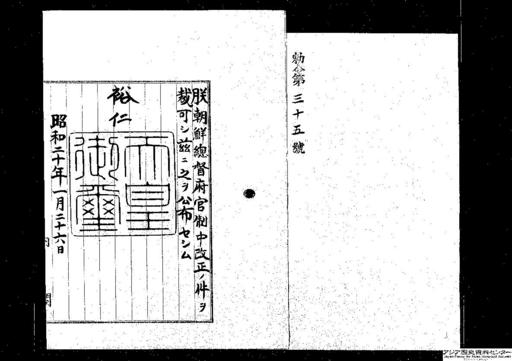 勅令第三十五號
朕朝鮮總督府官制中改正ノ件ヲ
裁可シ玆ニ之ヲ公布セシム
裕仁
天皇
御璽
昭和二十年一月二十六日
内閣
アジア歴史資料センター